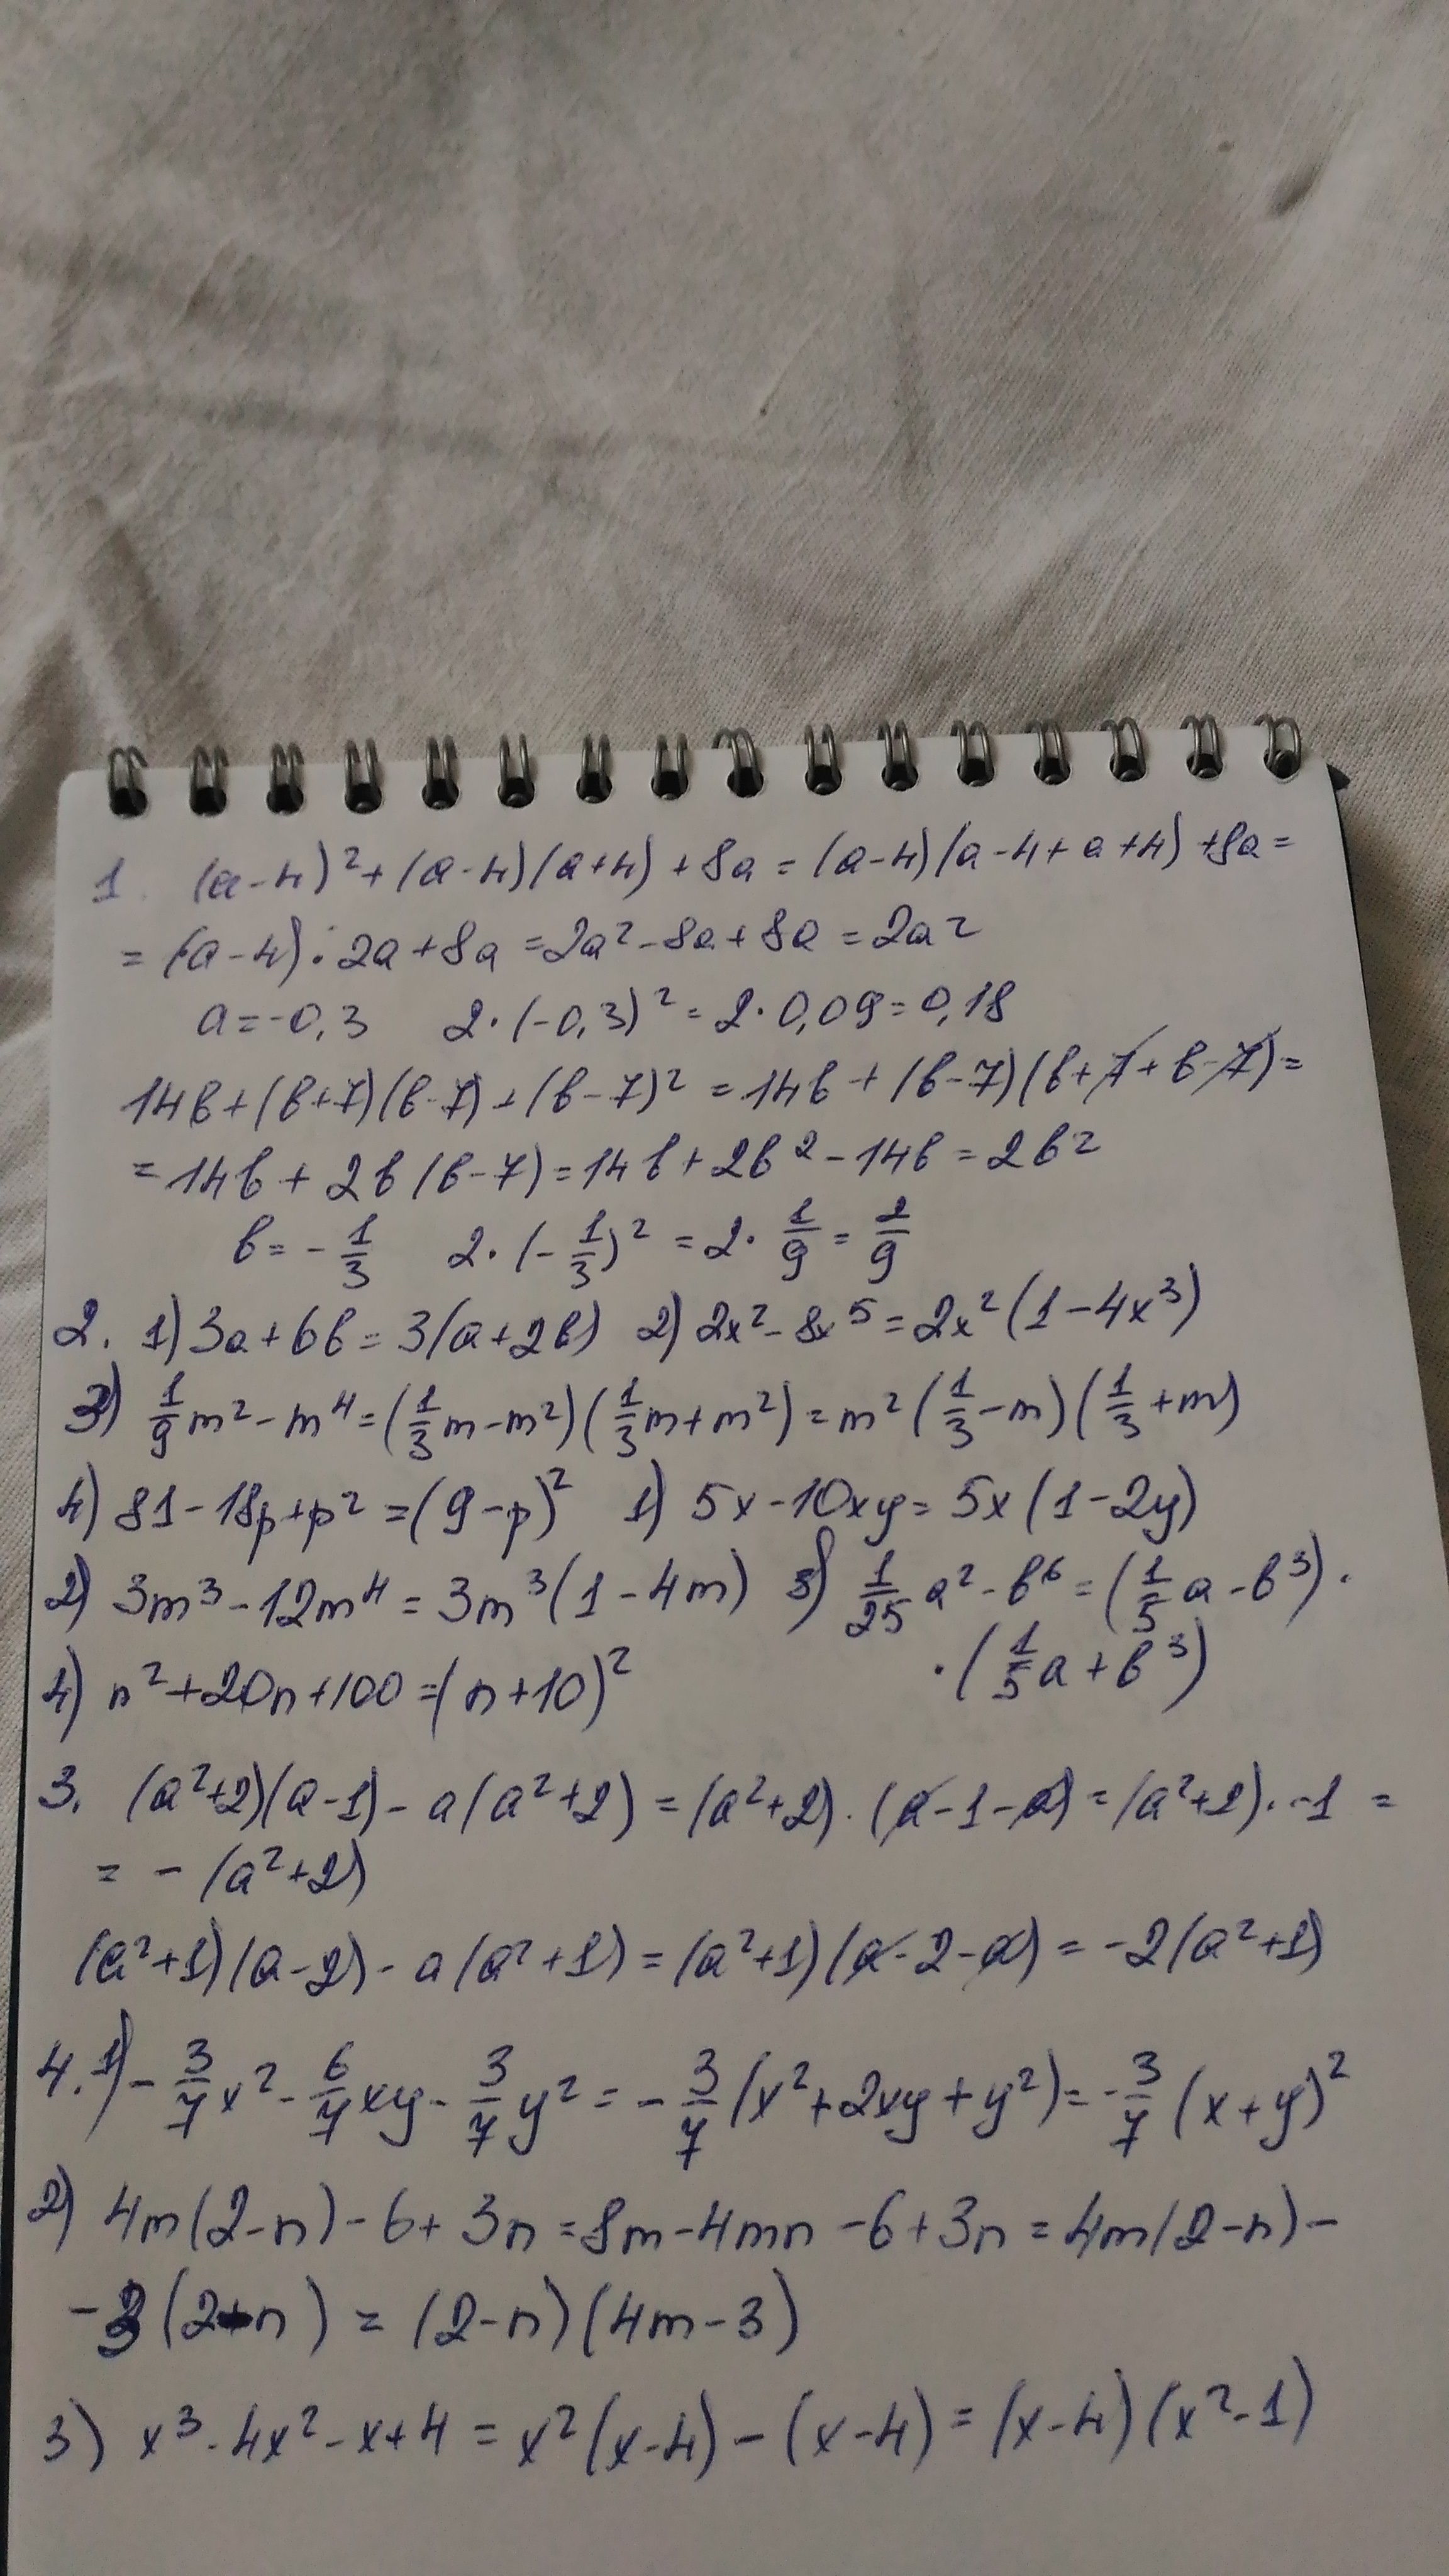 1. (a-4)²+(a-4)(a+4)+8a=(a-4)(a-4+a+4)+8a=
=(a-4)·2a+8a=2a²-8a+8a=2a²
a=-0,3 2·(-0,3)²=2·0,09=0,18
14b+(b+7)(b-7)+(b-7)²=14b+(b-7)(b+7+b-7)=
=14b+2b(b-7)=14b+2b²-14b=2b²
b=-1/3 2·(-1/3)²=2·1/9=2/9
2. 1) 3a+6b=3(a+2b) 2) 2x²-8x⁵=2x²(1-4x³)
3) 1/9m²-m⁴=(1/3m-m²)(1/3m+m²)=m²(1/3-m)(1/3+m)
4) 81-18p+p²=(9-p)² 1) 5x-10xy=5x(1-2y)
2) 3m³-12m⁴=3m³(1-4m) 3) 1/25a²-b⁶=(1/5a-b³)·
·(1/5a+b³)
4) n²+20n+100=(n+10)²
3. (a²+2)(a-1)-a(a²+2)=(a²+2)·(a-1-a)=(a²+2)·-1=
=-(a²+2)
(a²+1)(a-2)-a(a²+1)=(a²+1)(a-2-a)=-2(a²+1)
4. 1) -3/7x²-6/7xy-3/7y²=-3/7(x²+2xy+y²)=-3/7(x+y)²
2) 4m(2-n)-6+3n=8m-4mn-6+3n=4m(2-n)-
-3(2-n)=(2-n)(4m-3)
3) x³-4x²-x+4=x²(x-4)-(x-4)=(x-4)(x²-1)